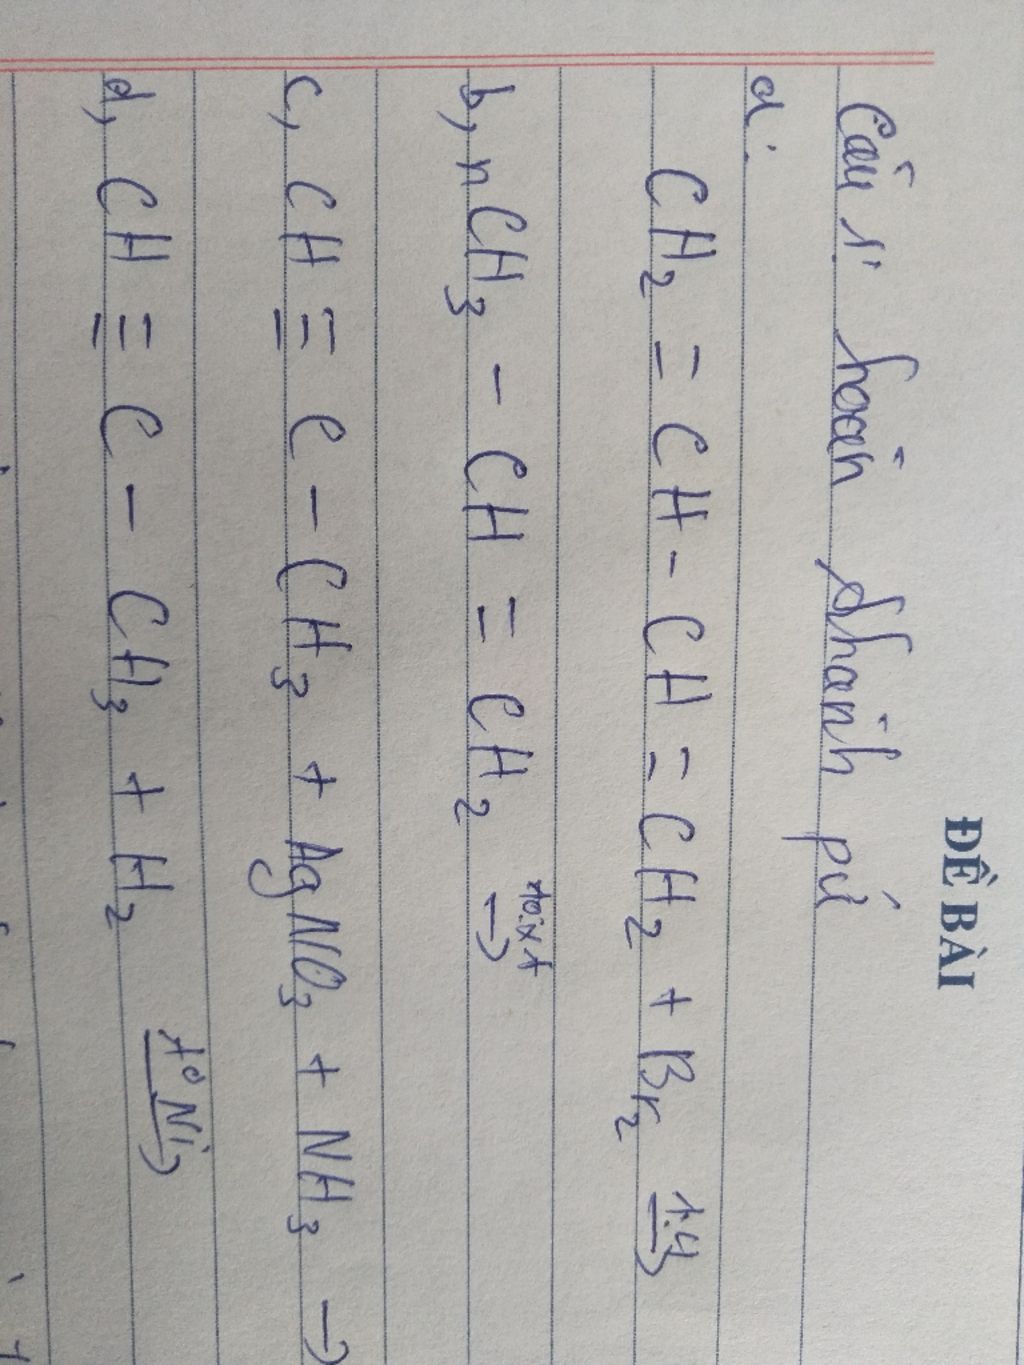 ĐỀ BÀI
Câu 1: hoàn thành pứ
a.
CH₂ = CH - CH = CH₂ + Br₂ 1:4 →
b, nCH₃ - CH = CH₂ to,xt →
c, CH ≡ C - CH₃ + AgNO₃ + NH₃ →
d, CH ≡ C - CH₃ + H₂ t° Ni →